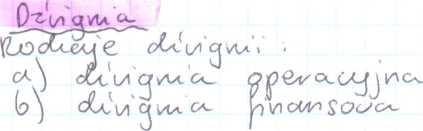 Dźwignia
Rodzaje dźwigni:
a) dźwignia operacyjna
b) dźwignia finansowa